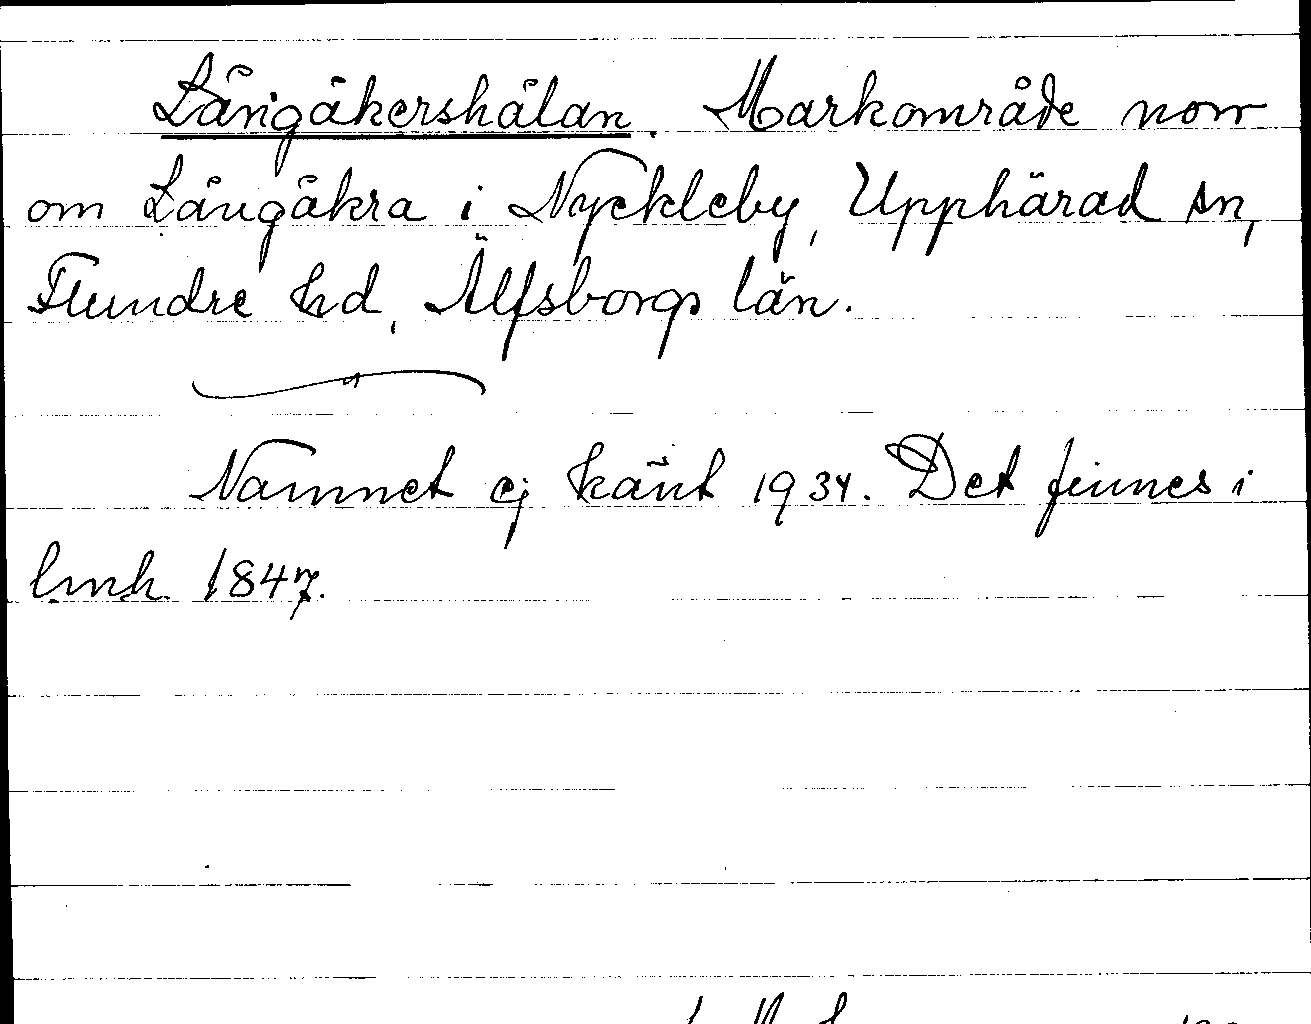 Långåkershålan. Markområde norr
om Långåkra i Nyckleby, Upphärad sn,
Flundre hd, Älfsborgs län.
Namnet ej känt 1934. Det finnes i
lmh. 1847.